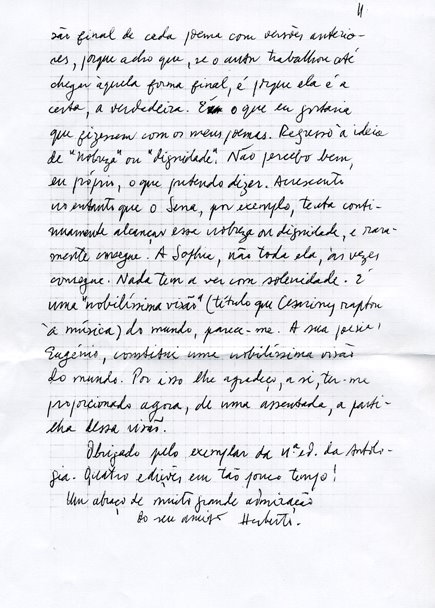 11
são final de cada poema com versões anterio-
res, porque acho que, se o autor trabalhou até
chegar àquela forma final, é porque ela é a
certa, a verdadeira. É o que eu gostaria
que fizessem com os meus poemas. Regresso à ideia
de "nobreza" ou "dignidade". Não percebo bem,
eu próprio, o que pretendo dizer. Acrescento
no entanto que o Sena, por exemplo, tenta conti-
nuamente alcançar essa nobreza ou dignidade, e rara-
mente consegue. A Sophia, não toda ela, às vezes
consegue. Nada tem a ver com solenidade. É
uma "nobilíssima visão" (título que Cesariny raptou
à música) do mundo, parece-me. A sua poesia,
Eugénio, constitui uma nobilíssima visão
do mundo. Por isso lhe agradeço, a si, ter-me
proporcionado agora, de uma assentada, a parti-
lha dessa visão.
Obrigado pelo exemplar da ed. da Antolo-
gia. Quatro edições em tão pouco tempo!
Um abraço de muito grande admiração
do seu amigo Herberto.